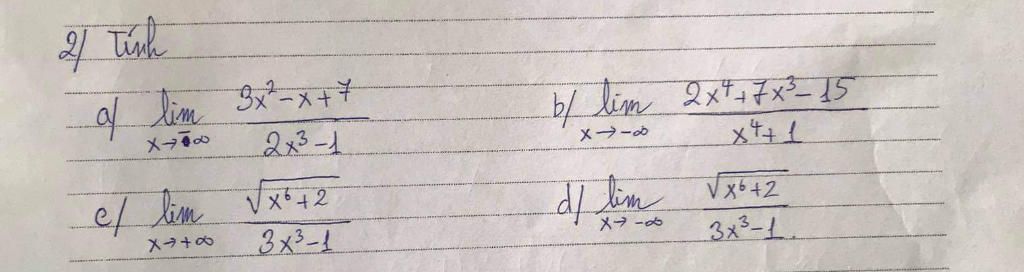 2/ Tính
a/ lim x→-∞ (3x²-x+7)/(2x³-1) b/ lim x→-∞ (2x⁴+7x³-15)/(x⁴+1)
c/ lim x→+∞ √(x⁶+2)/(3x³-1) d/ lim x→-∞ √(x⁶+2)/(3x³-1).